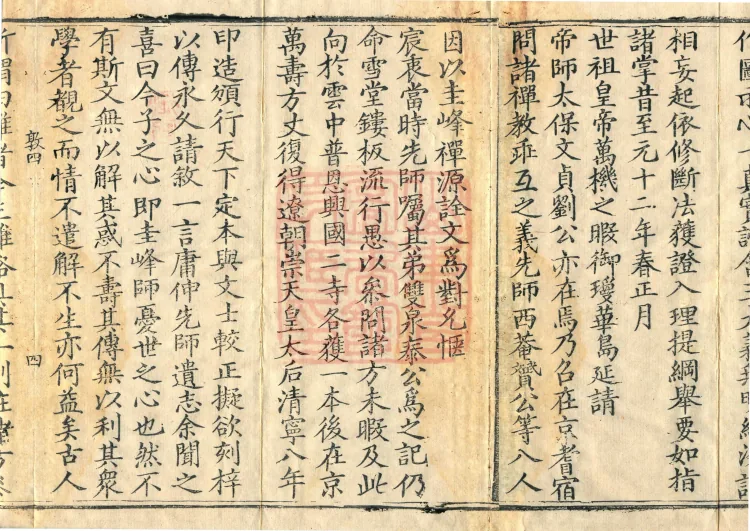 相妄起依修斷法獲證入理提綱舉要如指
諸掌昔至元十二年春正月
世祖皇帝萬機之暇御瓊華島延請
帝師太保文貞劉公亦在焉乃召在京耆宿
問諸禪教乖互之義先師西菴贇公等八人
因以圭峰禪源詮文為對允愜
宸衷當時先師囑其弟雙泉泰公為之記仍
命雪堂鏤板流行愚以參問諸方未暇及此
向於雲中普恩興國二寺各獲一本後在京
萬壽方丈復得遼朝崇天皇太后清寧八年
印造頒行天下定本與文士較正擬欲刻梓
以傳永久請敘一言庸伸先師遺志余聞之
喜曰今子之心即圭峰師憂世之心也然不
有斯文無以解其惑不壽其傳無以利其衆
學者觀之而情不遣解不生亦何益矣古人
敦四
四